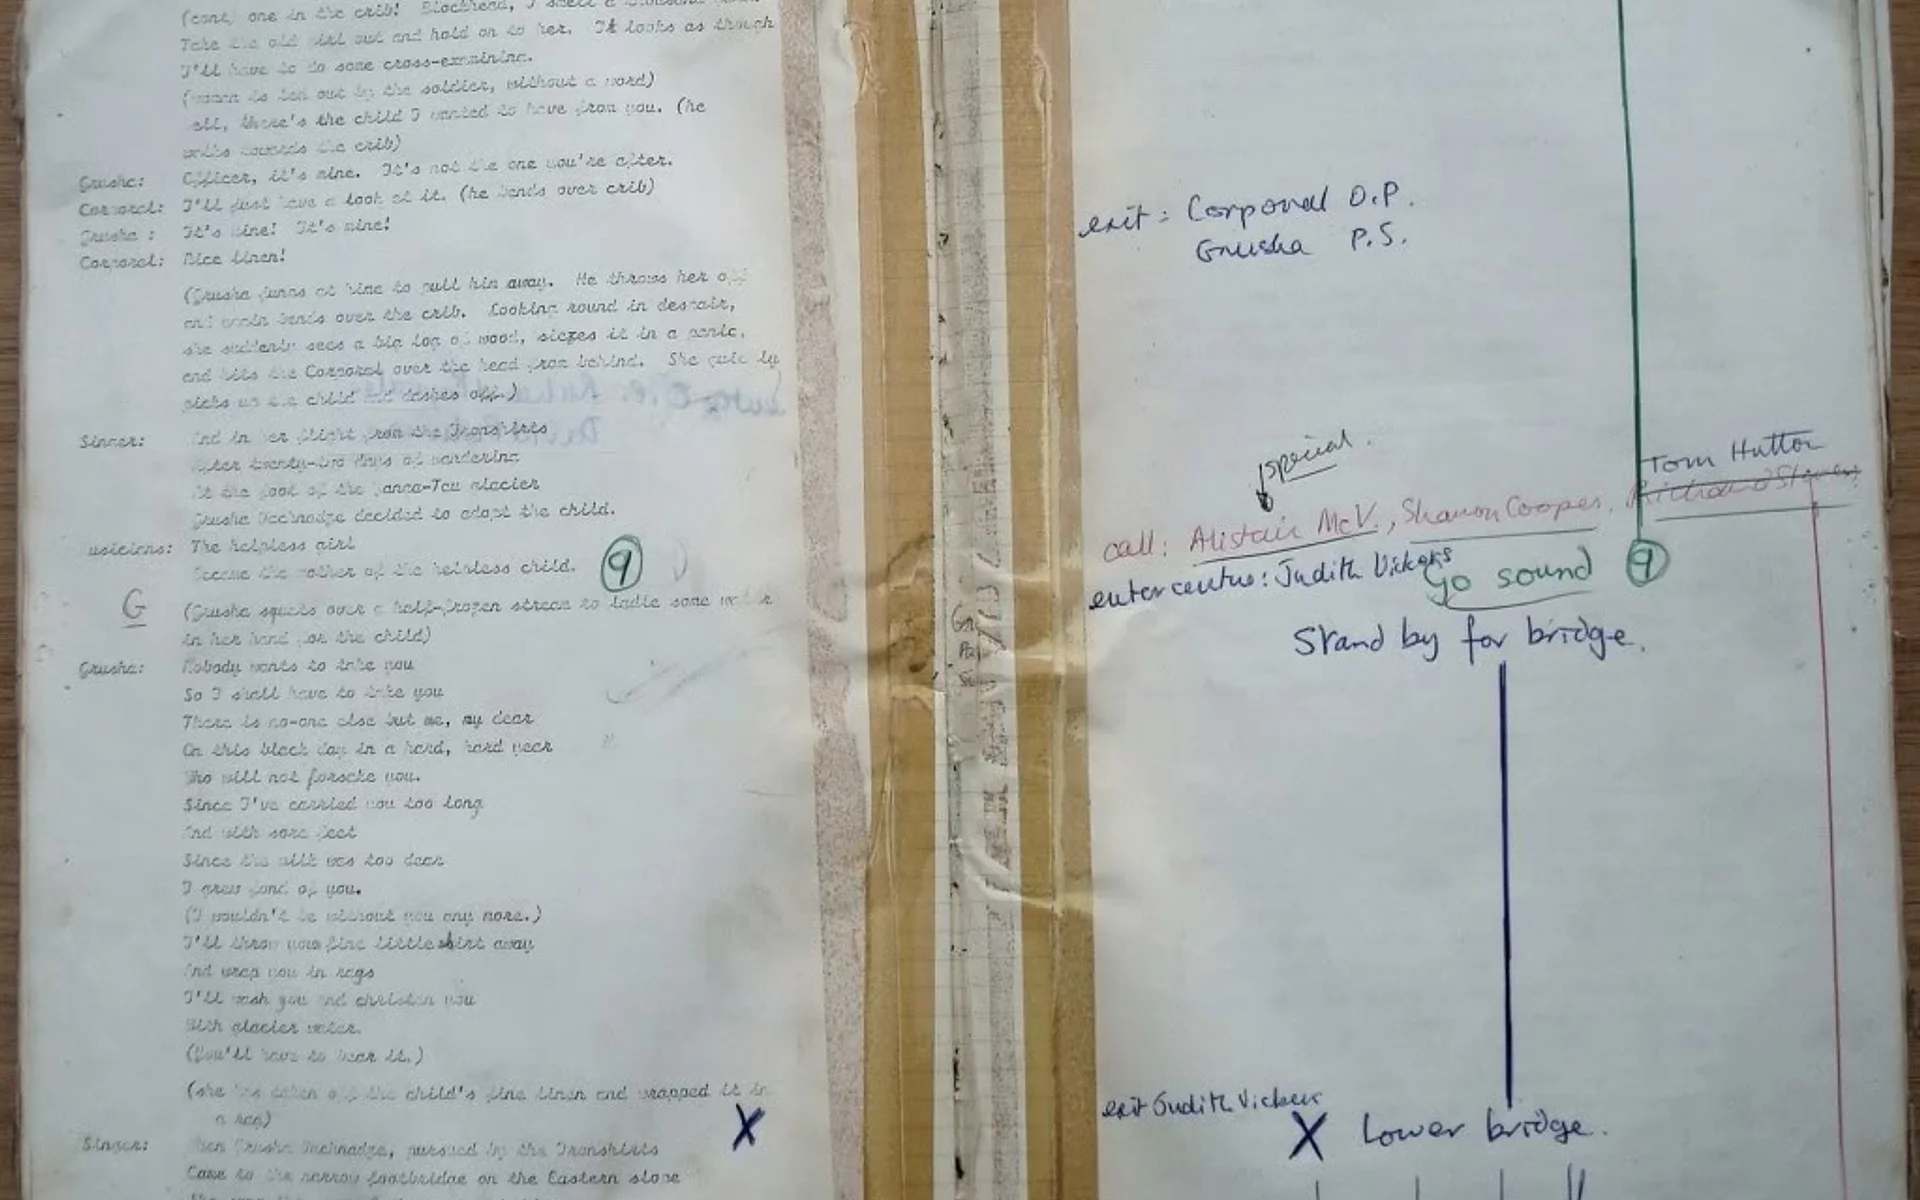 (cont) one in the crib! Blockhead, I smell a
Take the old girl out and hold on to her. It looks as though
I'll have to do some cross-examining.
(woman is led out by the soldier, without a word)
ell, there's the child I wanted to have from you. (he
walks towards the crib)
Grusha: Officer, it's mine. It's not the one you're after.
Corporal: I'll just have a look at it. (he bends over crib)
Grusha : It's mine! It's mine!
Corporal: Nice linen!
(Grusha jumps at hime to pull him away. He throws her off
and again bends over the crib. Looking round in despair,
she suddenly sees a big log of wood, siezes it in a panic,
and hits the Corporal over the head from behind. She quickly
picks up the child and dashes off.)
Singer: And in her flight from the Ironshirts
After twenty-two days of wandering
At the foot of the Janga-Tau glacier
Grusha Vachnadze decided to adopt the child.
usicians: The helpless girl
Became the mother of the helpless child. 9
G (Grusha squats over a half-frozen stream to ladle some water
in her hand for the child)
Grusha: Nobody wants to take you
So I shall have to take you
There is no-one else but me, my dear
On this black day in a hard, hard year
Who will not forsake you.
Since I've carried you too long
And with sore feet
Since the milk was too dear
I grew fond of you.
(I wouldn't be without you any more.)
I'll throw your fine little shirt away
And wrap you in rags
I'll wash you and christen you
With glacier water.
(You'll have to bear it.)
(she has taken off the child's fine linen and wrapped it in
a rag) X
Singer: When Grusha Vachnadze, pursued by the Ironshirts
Came to the narrow footbridge on the Eastern slope
exit : Corporal O.P.
Grusha P.S.
special.
Tom Hutton
call: Alistair McV., Sharon Cooper,
enter centre: Judith Vickers
Go sound 9
Stand by for bridge.
exit Judith Vickers
X Lower bridge.